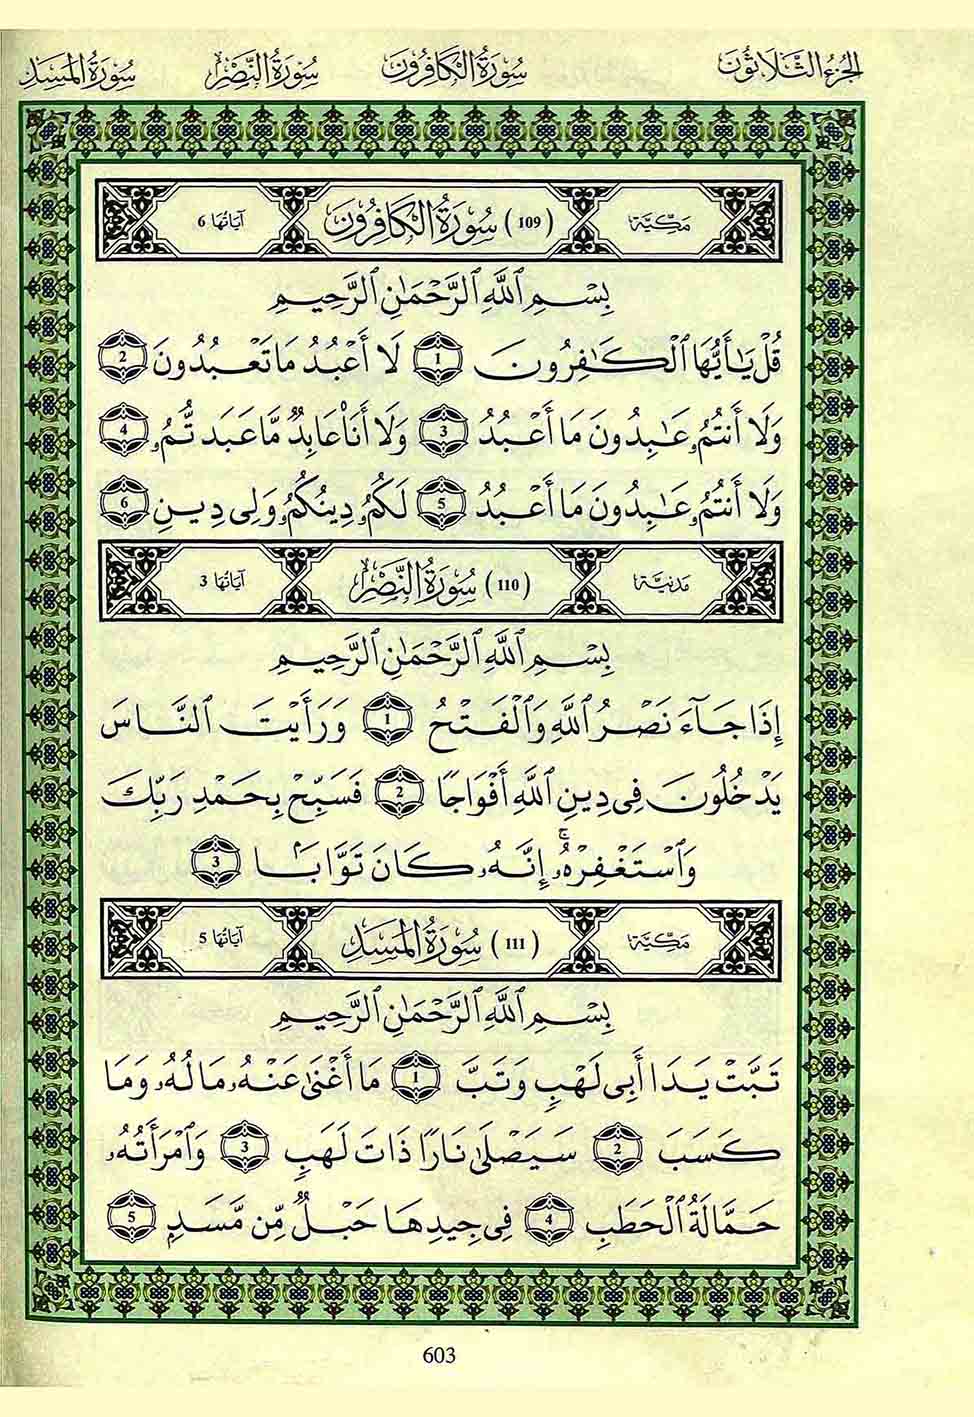 الجُزءُ الثَّلَاثُونَ سُورَةُ الكَافِرُونَ سُورَةُ النَّصْرِ سُورَةُ المَسَدِ
مَكِّيَّة (109) سُورَةُ الكَافِرُونَ آيَاتُهَا 6
بِسْمِ ٱللَّهِ ٱلرَّحْمَٰنِ ٱلرَّحِيمِ
قُلْ يَٰٓأَيُّهَا ٱلْكَٰفِرُونَ 1 لَآ أَعْبُدُ مَا تَعْبُدُونَ 2
وَلَآ أَنتُمُۥ عَٰبِدُونَ مَآ أَعْبُدُ 3 وَلَآ أَنَا۠ عَابِدٌ مَّا عَبَدتُّمُۥ 4
وَلَآ أَنتُمُۥ عَٰبِدُونَ مَآ أَعْبُدُ 5 لَكُمُۥ دِينُكُمُۥ وَلِى دِينِ 6
مَدَنِيَّة (110) سُورَةُ النَّصْرِ آيَاتُهَا 3
بِسْمِ ٱللَّهِ ٱلرَّحْمَٰنِ ٱلرَّحِيمِ
إِذَا جَآءَ نَصْرُ ٱللَّهِ وَٱلْفَتْحُ 1 وَرَأَيْتَ ٱلنَّاسَ
يَدْخُلُونَ فِى دِينِ ٱللَّهِ أَفْوَاجًا 2 فَسَبِّحْ بِحَمْدِ رَبِّكَ
وَٱسْتَغْفِرْهُۥٓ ۚ إِنَّهُۥ كَانَ تَوَّابَۢا 3
مَكِّيَّة (111) سُورَةُ المَسَدِ آيَاتُهَا 5
بِسْمِ ٱللَّهِ ٱلرَّحْمَٰنِ ٱلرَّحِيمِ
تَبَّتْ يَدَآ أَبِى لَهْبٍ وَتَبَّ 1 مَآ أَغْنَىٰ عَنْهُۥ مَالُهُۥ وَمَا
كَسَبَ 2 سَيَصْلَىٰ نَارًا ذَاتَ لَهَبٍ 3 وَٱمْرَأَتُهُۥ
حَمَّالَةُ ٱلْحَطَبِ 4 فِى جِيدِهَا حَبْلٌ مِّن مَّسَدٍ 5
603